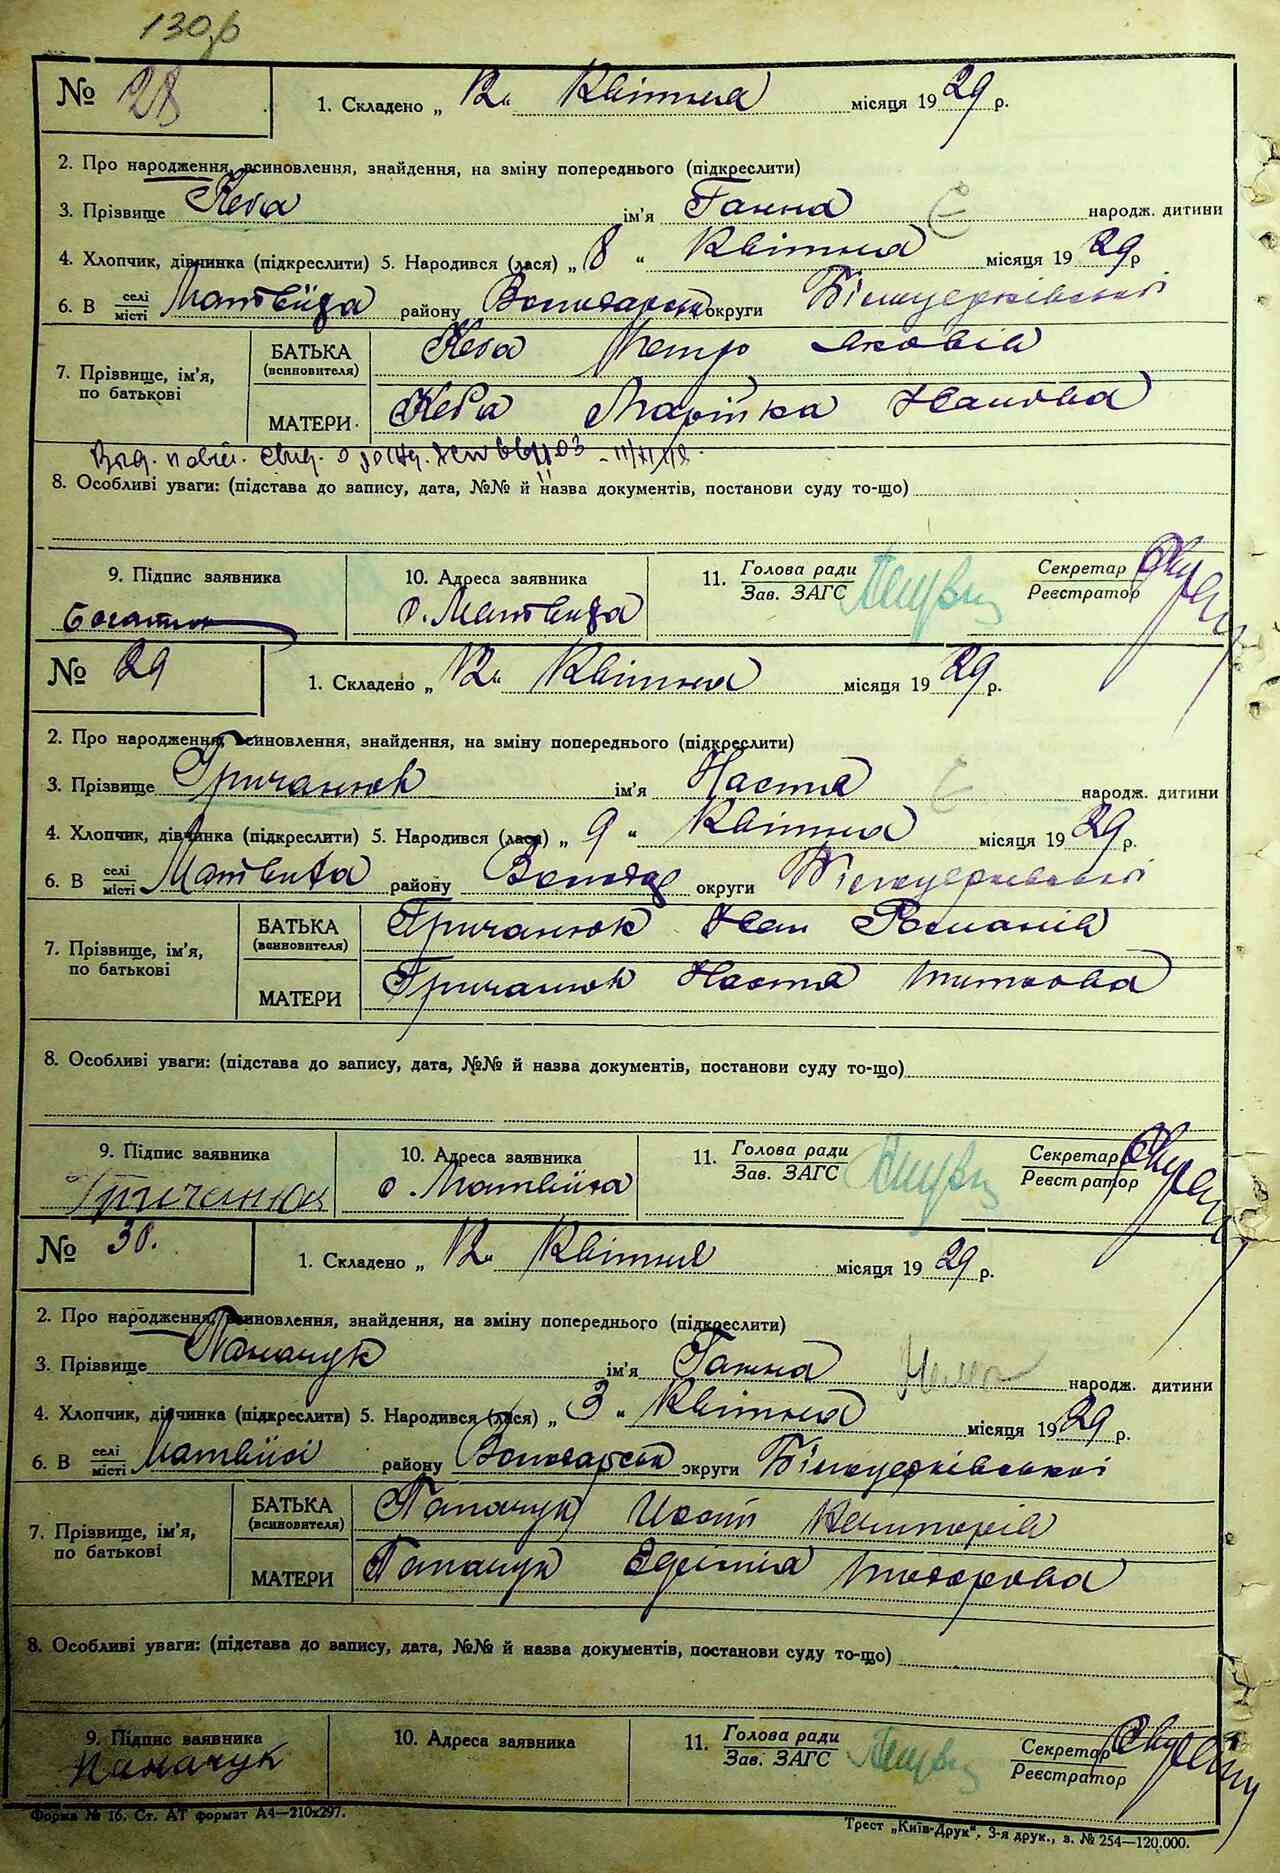 130
№ 28
1. Складено „ 12 " Квітня місяця 1929 р.
2. Про народження, всиновлення, знайдення, на зміну попереднього (підкреслити)
3. Прізвище Кеба ім'я Ганна Є народж. дитини
4. Хлопчик, дівчинка (підкреслити) 5. Народився (лася) „ 8 " Квітня місяця 1929 р
6. В селі місті району Володарськ округи Білоцерківської
7. Прізвище, ім'я, по батькові
БАТЬКА (всиновителя) Кеба Петро Яковів
МАТЕРИ Кеба Марійка Іванова
8. Особливі уваги: (підстава до запису, дата, №№ й назва документів, постанови суду то-що)
9. Підпис заявника
10. Адреса заявника
11. Голова ради Зав. ЗАГС
Секретар Реєстратор
№ 29
1. Складено „ 12 " Квітня місяця 1929 р.
2. Про народження, всиновлення, знайдення, на зміну попереднього (підкреслити)
3. Прізвище Гричанюк ім'я Настя Є народж. дитини
4. Хлопчик, дівчинка (підкреслити) 5. Народився (лася) „ 9 " Квітня місяця 1929 р.
6. В селі місті району Володар округи Білоцерківської
7. Прізвище, ім'я, по батькові
БАТЬКА (всиновителя) Гричанюк Іван Романів
МАТЕРИ Гричанюк Настя Титкова
8. Особливі уваги: (підстава до запису, дата, №№ й назва документів, постанови суду то-що)
9. Підпис заявника Гричанюк
10. Адреса заявника
11. Голова ради Зав. ЗАГС
Секретар Реєстратор
№ 30.
1. Складено „ 12 " Квітня місяця 1929 р.
2. Про народження, всиновлення, знайдення, на зміну попереднього (підкреслити)
3. Прізвище Паначук ім'я Ганна народж. дитини
4. Хлопчик, дівчинка (підкреслити) 5. Народився (лася) „ 3 " Квітня місяця 1929 р.
6. В селі місті району Володарськ округи Білоцерківської
7. Прізвище, ім'я, по батькові
БАТЬКА (всиновителя)
МАТЕРИ Тодорова
8. Особливі уваги: (підстава до запису, дата, №№ й назва документів, постанови суду то-що)
9. Підпис заявника Паначук
10. Адреса заявника
11. Голова ради Зав. ЗАГС
Секретар Реєстратор
Форма № 16. Ст. АТ формат А4—210x297.
Трест „Київ-Друк", 3-я друк., з. № 254—120.000.